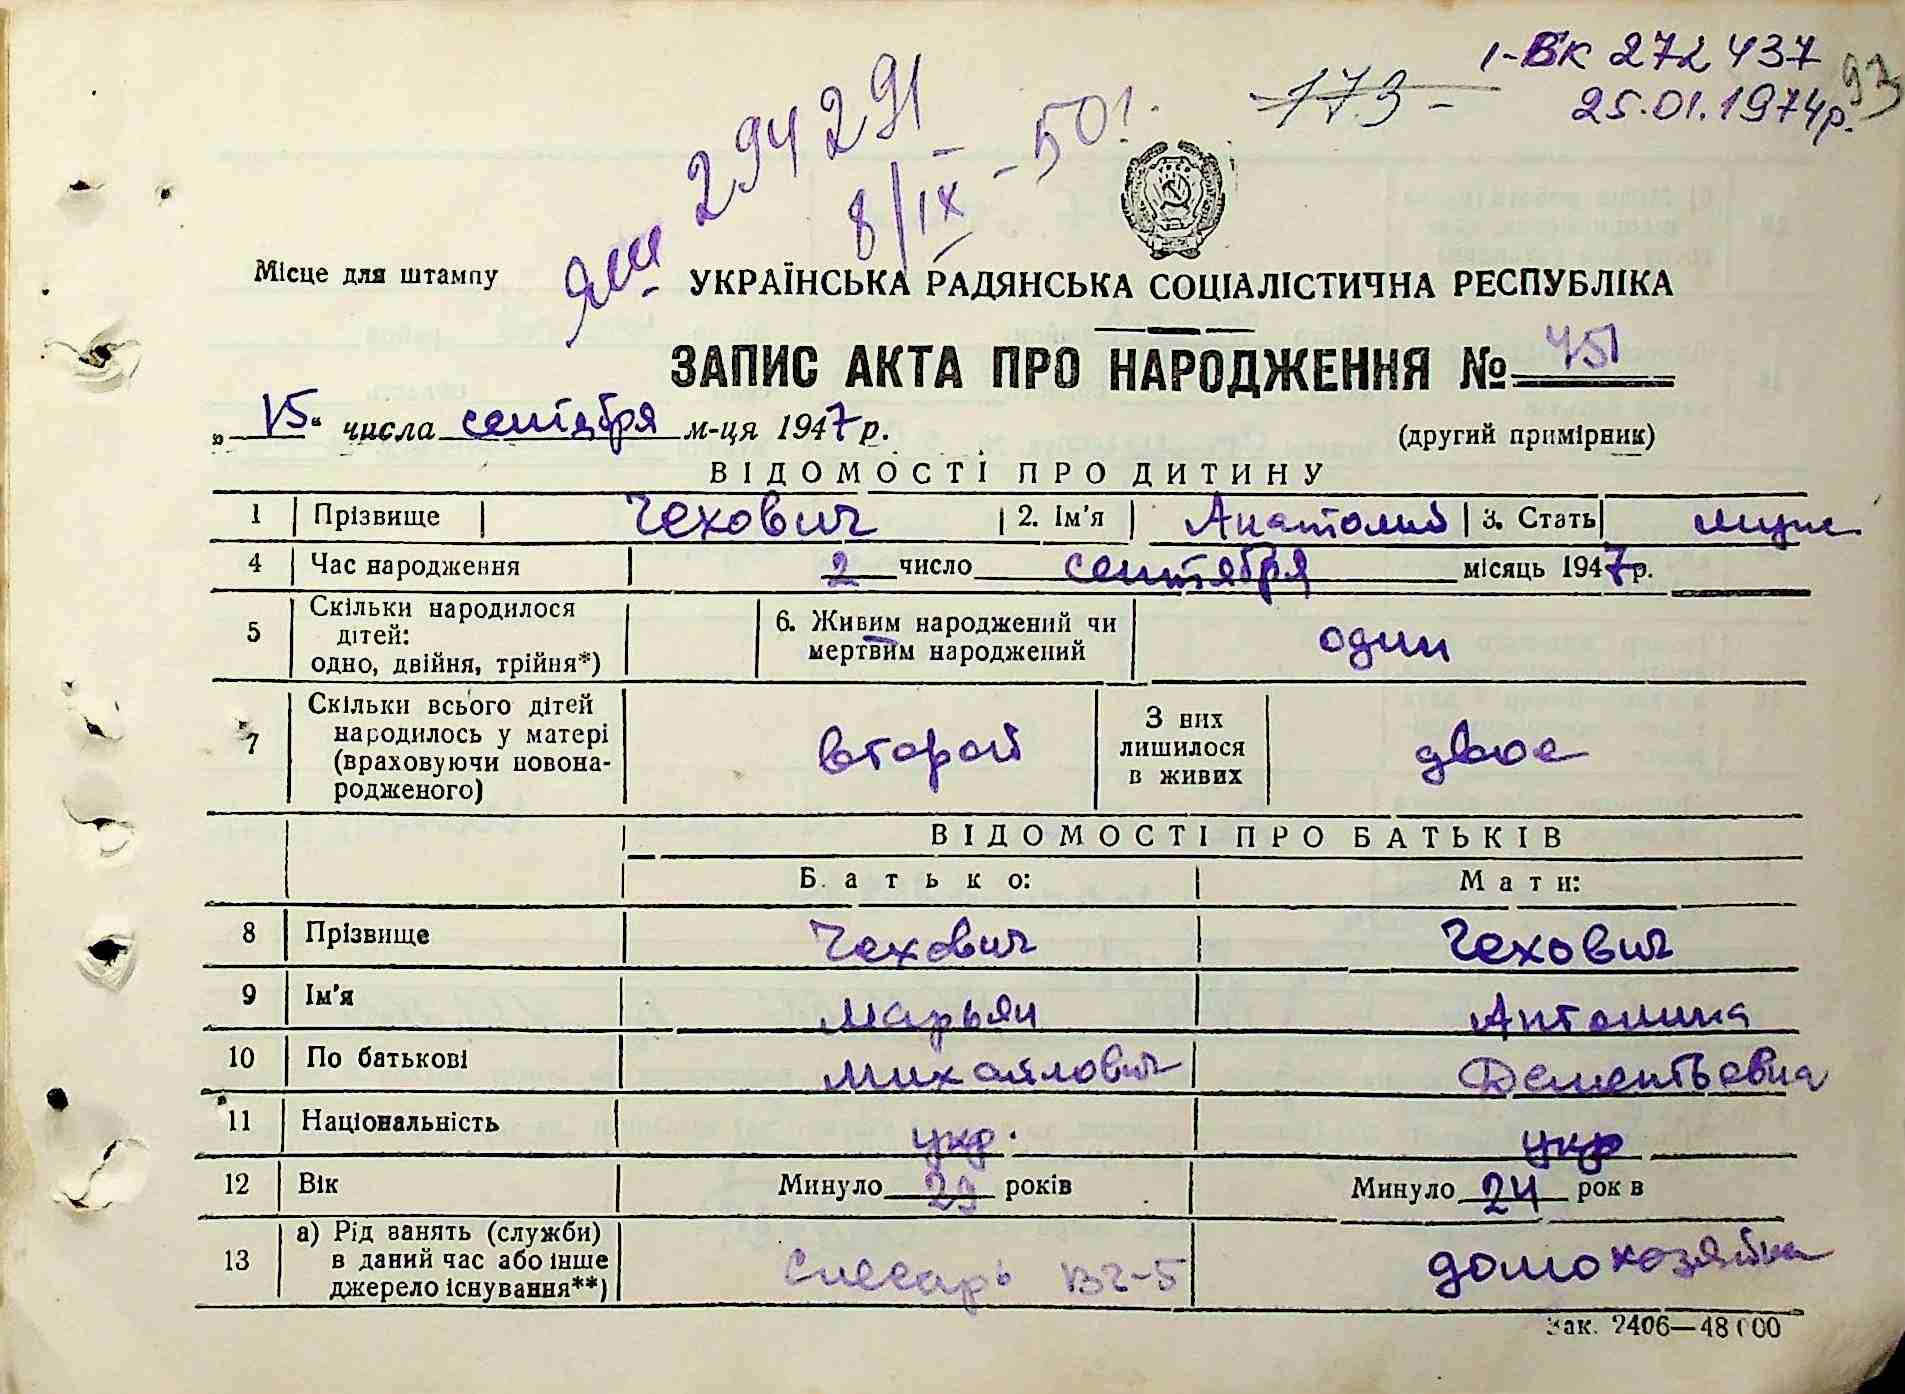 I-ВК 272 437
93
173 -
25.01.1974р.
ЯШ 294291
8/IX - 50г.
Місце для штампу
УКРАЇНСЬКА РАДЯНСЬКА СОЦІАЛІСТИЧНА РЕСПУБЛІКА
ЗАПИС АКТА ПРО НАРОДЖЕННЯ № 451
„15“ числа сентября м-ця 1947 р.
(другий примірник)
ВІДОМОСТІ ПРО ДИТИНУ
1 Прізвище Чехович 2. Ім'я Анатолий 3. Стать муж
4 Час народження 2 число сентября місяць 1947р.
5 Скільки народилося дітей: одно, двійня, трійня*) 6. Живим народжений чи мертвим народжений один
7 Скільки всього дітей народилось у матері (враховуючи новонародженого) второй З них лишилося в живих двое
ВІДОМОСТІ ПРО БАТЬКІВ
Батько: Мати:
8 Прізвище Чехович Чехович
9 Ім'я Марьян Антонина
10 По батькові Михайлович Дементьевна
11 Національність укр. укр
12 Вік Минуло 29 років Минуло 24 рок в
13 а) Рід занять (служби) в даний час або інше джерело існування**) Слесарь ВЧ-5 домохозяйка
Зак. 2406—48000